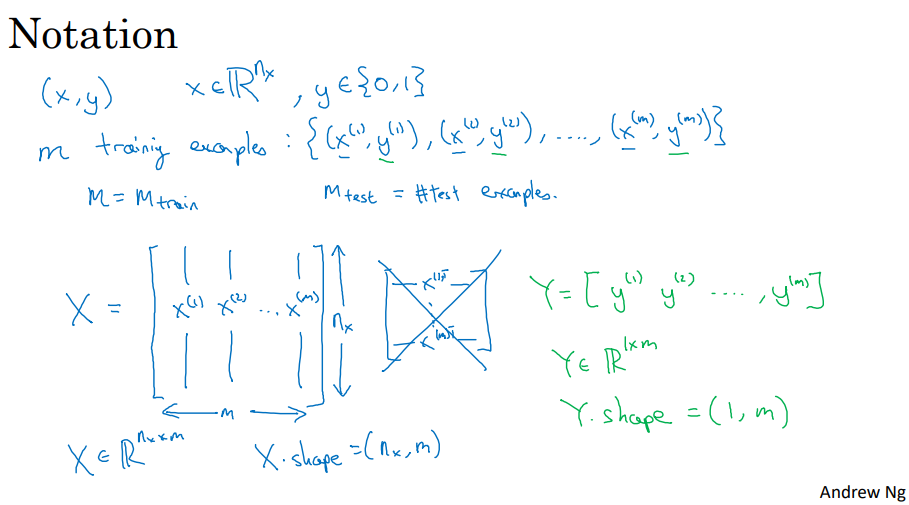 Notation
(x,y) x∈ℝ^{n_x}, y∈{0,1}
m training examples: {(x^{(1)},y^{(1)}), (x^{(2)},y^{(2)}), ...., (x^{(m)},y^{(m)})}
M = M_{train} M_{test} = #test examples.
X = [ x^{(1)} x^{(2)} ... x^{(m)} ] n_x
m
x^{(1)T}
⋮
x^{(m)T}
X ∈ ℝ^{n_x×m} X.shape = (n_x, m)
Y = [ y^{(1)} y^{(2)} ...., y^{(m)} ]
Y ∈ ℝ^{1×m}
Y.shape = (1, m)
Andrew Ng